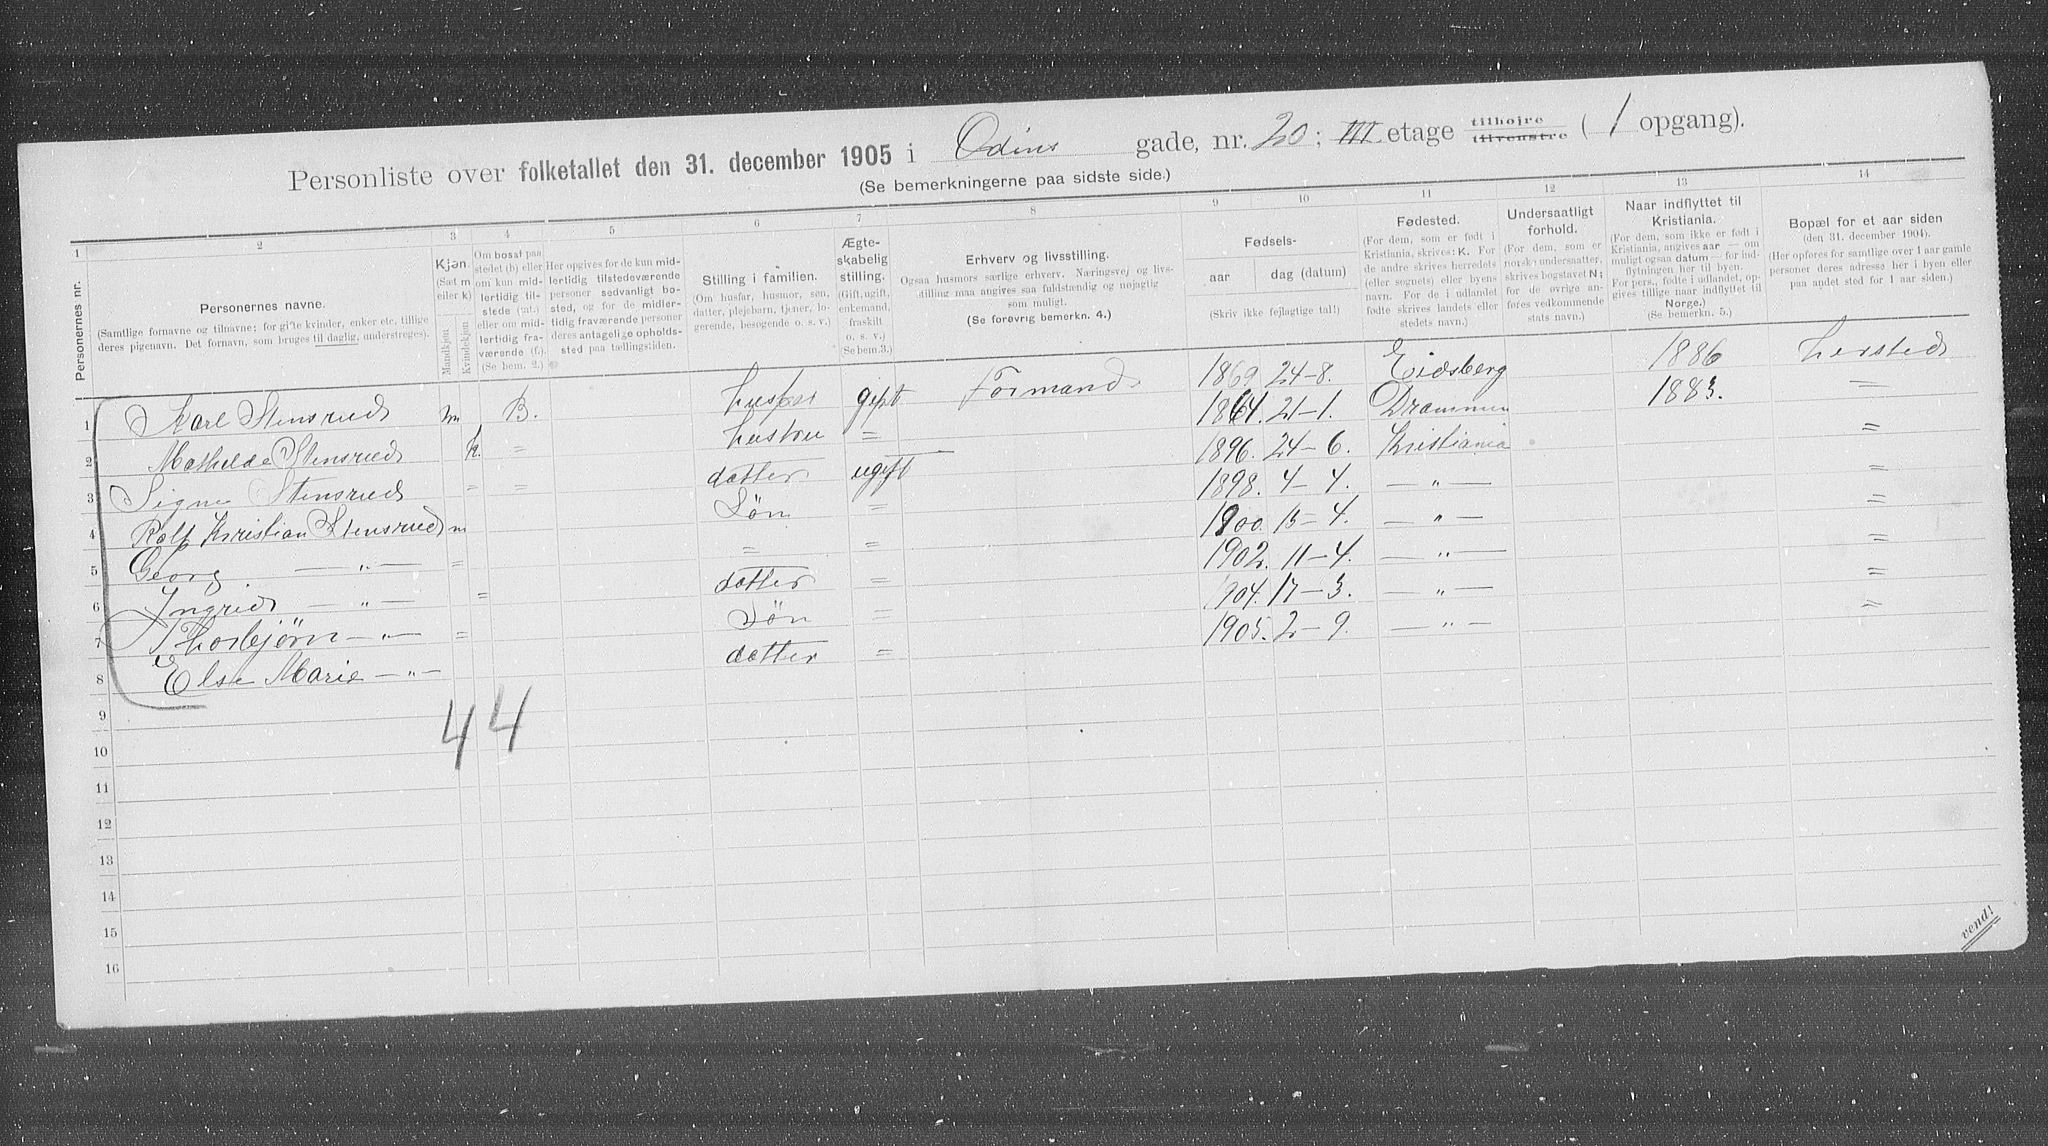 Personliste over folketallet den 31. december 1905 i Odins gade, nr. 20; III. etage tilhøjre tilvenstre ( 1 opgang).
(Se bemerkningerne paa sidste side.)
1 2 3 4 5 6 7 8 9 10 11 12 13 14
Personernes nr.
Personernes navne.
(Samtlige fornavne og tilnavne; for gifte kvinder, enker etc. tillige deres pigenavn. Det fornavn, som bruges til daglig, understreges).
Kjøn.
(Sæt m eller k)
Mandkjøn
Kvindekjøn
Om bosat paa stedet (b) eller om kun midlertidig tilstede (mt.) eller om midlertidig fraværende (f.). (Se bem. 2.)
Her opgives for de kun midlertidig tilstedeværende personer sedvanligt bosted, og for de midlertidig fraværende personer deres antagelige opholdssted paa tællingstiden.
Stilling i familien.
(Om husfar, husmor, søn, datter, plejebarn, tjener, logerende, besøgende o. s. v.)
Ægteskabelig stilling.
(Gift, ugift, enkemand, fraskilt o. s. v.) (Se bem. 3.)
Erhverv og livsstilling.
Ogsaa husmors særlige erhverv. Næringsvej og livsstilling maa angives saa fuldstændig og nøjagtig som muligt.
(Se forøvrig bemerkn. 4.)
Fødsels-
aar
dag (datum)
(Skriv ikke fejlagtige tal!)
Fødested.
(For dem, som er født i Kristiania, skrives: K. For de andre skrives herredets (eller sognets) eller byens navn. For de i udlandet fødte skrives landets eller stedets navn.)
Undersaatligt forhold.
(For dem, som er norske undersaatter, skrives bogstavet N; for de øvrige anføres vedkommende stats navn.)
Naar indflyttet til Kristiania.
(For dem, som ikke er født i Kristiania, angives aar — om muligt ogsaa datum — for indflytningen her til byen. For pers., fødte i udlandet, opgives tillige naar indflyttet til Norge.)
(Se bemerkn. 5.)
Bopæl for et aar siden
(den 31. december 1904).
(Her opføres for samtlige over 1 aar gamle personer deres adresse her i byen eller paa andet sted for 1 aar siden.)
1 Karl Stensrud m B. husfar gift Formand 1869 24-8. Eidsberg 1886 hersteds
2 Mathilde Stensrud k. = hustru = 1864. 21-1. Drammen 1883. —
3 Signe Stensrud = = datter ugift 1896. 24-6. Kristiania =
4 Rolf Kristian Stensrud m Søn = 1898. 4-4. — " — =
5 Georg — " — = = = 1900. 15-4. — " — =
6 Ingrid — " — = datter = 1902. 11-4. — " — =
7 Thorbjørn — " — = Søn = 1904. 17-3. — " — =
8 Else Marie — " — datter = 1905. 2-9. — " — =
9
4 4
10
11
12
13
14
15
16
vend!